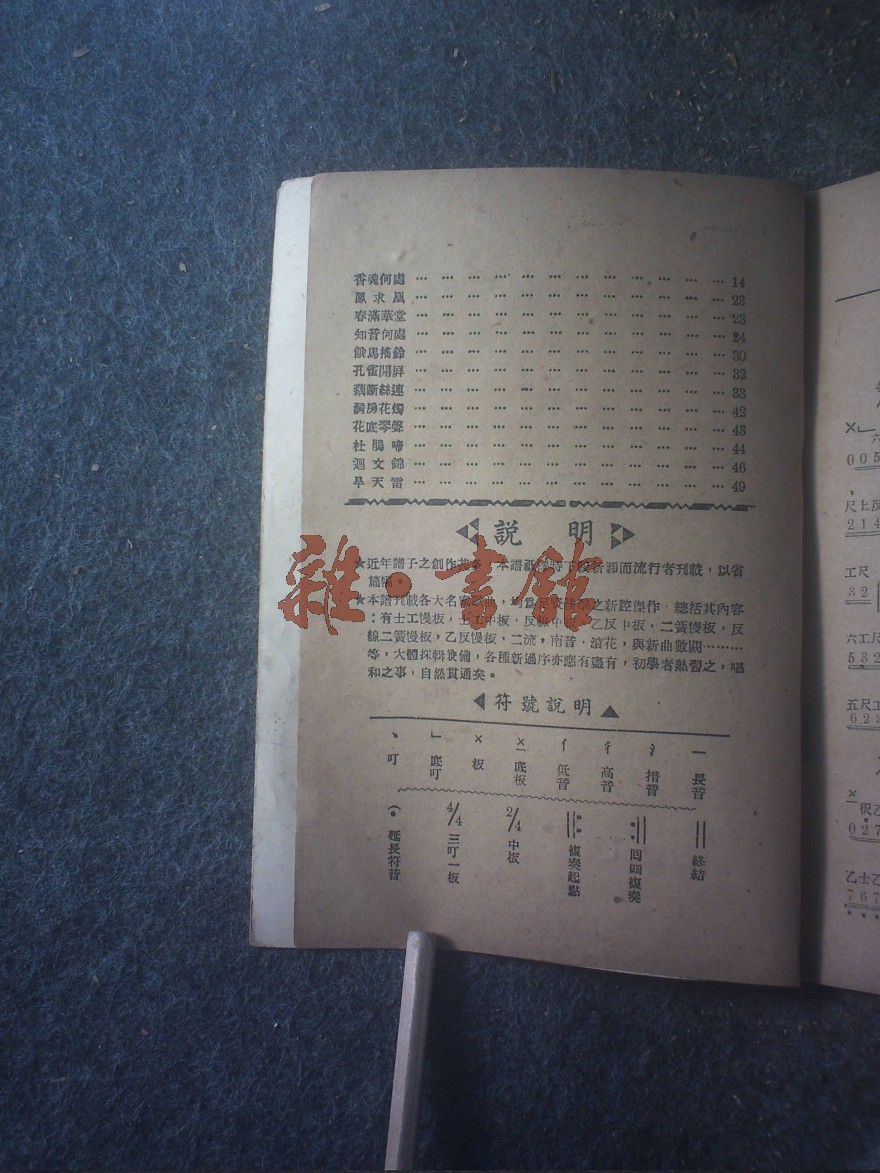 香魂何處 … … … … … … … … … … … … 14
鳳求凰 … … … … … … … … … … … … 23
春滿華堂 … … … … … … … … … … … … 23
知音何處 … … … … … … … … … … … … 24
餓馬搖鈴 … … … … … … … … … … … … 30
孔雀開屏 … … … … … … … … … … … … 32
藕斷絲連 … … … … … … … … … … … … 33
洞房花燭 … … … … … … … … … … … … 42
花底琴聲 … … … … … … … … … … … … 43
杜鵑啼 … … … … … … … … … … … … 44
迴文錦 … … … … … … … … … … … … 46
旱天雷 … … … … … … … … … … … … 49
説 明
★近年譜子之創作,本譜 而流行者刊載,以省
篇幅
★本譜刊載各大名 之新腔傑作,總括其內容
:有士工慢板, 工中板,反線中 乙反中板,二簧慢板,反
線二簧慢板,乙反慢板,二流,南音,滾花,與新曲數闋………
等,大體採輯設備,各種新過序亦應有盡有,初學者熟習之,唱
和之事,自然貫通矣。
雜·書館
符號說明
一 長音
措音
彳 高音
亻 低音
底板
× 板
∟ 底叮
、 叮
終結
回頭複奏
複奏起點
2/4 中板
4/4 三叮一板
延長符音
六
0 0 5
尺上反
2 1 4
工尺
3 2
六工尺
5 3 2
五尺工
6 2 3
0 2 7
乙士乙
7 6 7